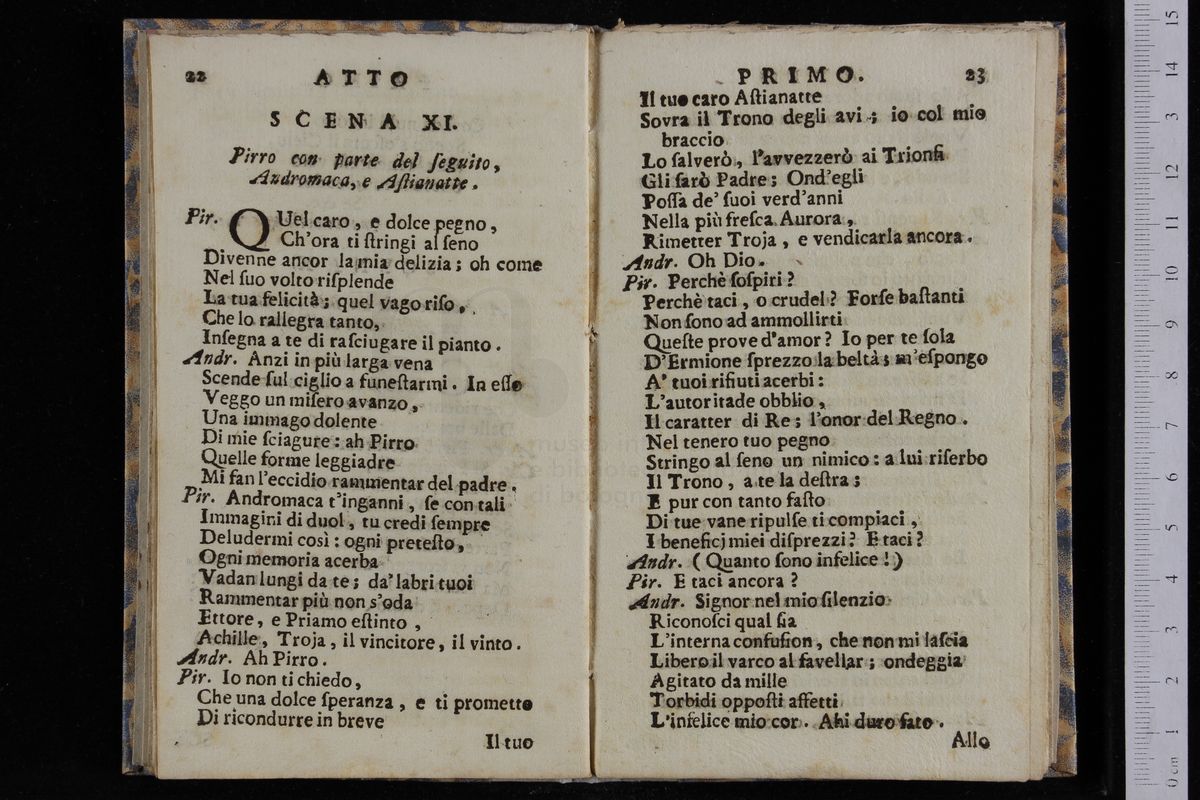 22 ATTO
SCENA XI.
Pirro con parte del ſeguito,
Andromaca, e Aſtianatte.
Pir. QUel caro, e dolce pegno,
Ch'ora ti ſtringi al ſeno
Divenne ancor la mia delizia; oh come
Nel ſuo volto riſplende
La tua felicità; quel vago riſo,
Che lo rallegra tanto,
Inſegna a te di raſciugare il pianto.
Andr. Anzi in più larga vena
Scende ſul ciglio a funeſtarmi. In eſſo
Veggo un miſero avanzo,
Una immago dolente
Di mie ſciagure: ah Pirro
Quelle forme leggiadre
Mi fan l'eccidio rammentar del padre.
Pir. Andromaca t'inganni, ſe con tali
Immagini di duol, tu credi ſempre
Deludermi così: ogni preteſto,
Ogni memoria acerba
Vadan lungi da te; da' labri tuoi
Rammentar più non s'oda
Ettore, e Priamo eſtinto,
Achille, Troja, il vincitore, il vinto.
Andr. Ah Pirro.
Pir. Io non ti chiedo,
Che una dolce ſperanza, e ti prometto
Di ricondurre in breve
Il tuo
PRIMO. 23
Il tuo caro Aſtianatte
Sovra il Trono degli avi; io col mio
braccio
Lo ſalverò, l'avvezzerò ai Trionfi
Gli ſarò Padre; Ond'egli
Poſſa de' ſuoi verd'anni
Nella più freſca Aurora,
Rimetter Troja, e vendicarla ancora.
Andr. Oh Dio.
Pir. Perchè ſoſpiri?
Perchè taci, o crudel? Forſe baſtanti
Non ſono ad ammollirti
Queſte prove d'amor? Io per te ſola
D'Ermione ſprezzo la beltà; m'eſpongo
A' tuoi rifiuti acerbi:
L'autoritade obblio,
Il caratter di Re; l'onor del Regno.
Nel tenero tuo pegno
Stringo al ſeno un nimico: a lui riſerbo
Il Trono, a te la deſtra;
E pur con tanto faſto
Di tue vane ripulſe ti compiaci,
I beneficj miei diſprezzi? E taci?
Andr. (Quanto ſono infelice!)
Pir. E taci ancora?
Andr. Signor nel mio ſilenzio
Riconoſci qual ſia
L'interna confuſion, che non mi laſcia
Libero il varco al favellar; ondeggia
Agitato da mille
Torbidi oppoſti affetti
L'infelice mio cor. Ahi duro fato.
Allo